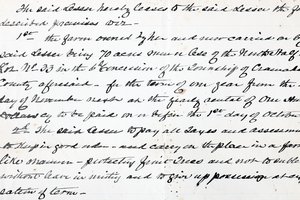 The said Lessor hereby leases to the said Lessee the f
described premises viz—
1st the farm owned by her and now carried on by
said Lessee being 70 acres more or less of the North
Lot No 33 in the 6th Concession of the Township of
County aforesaid. for the term of one year from the
day of November next at the yearly rental of One
dollars to be paid on or before the 1st day of October
2nd The said Lessee to pay all Taxes and assessme
to keep in good order — and carry on the place in a farm
like manner — protecting fruit Trees and not to suble
without leave in writing and to give up possession at ex
of term —